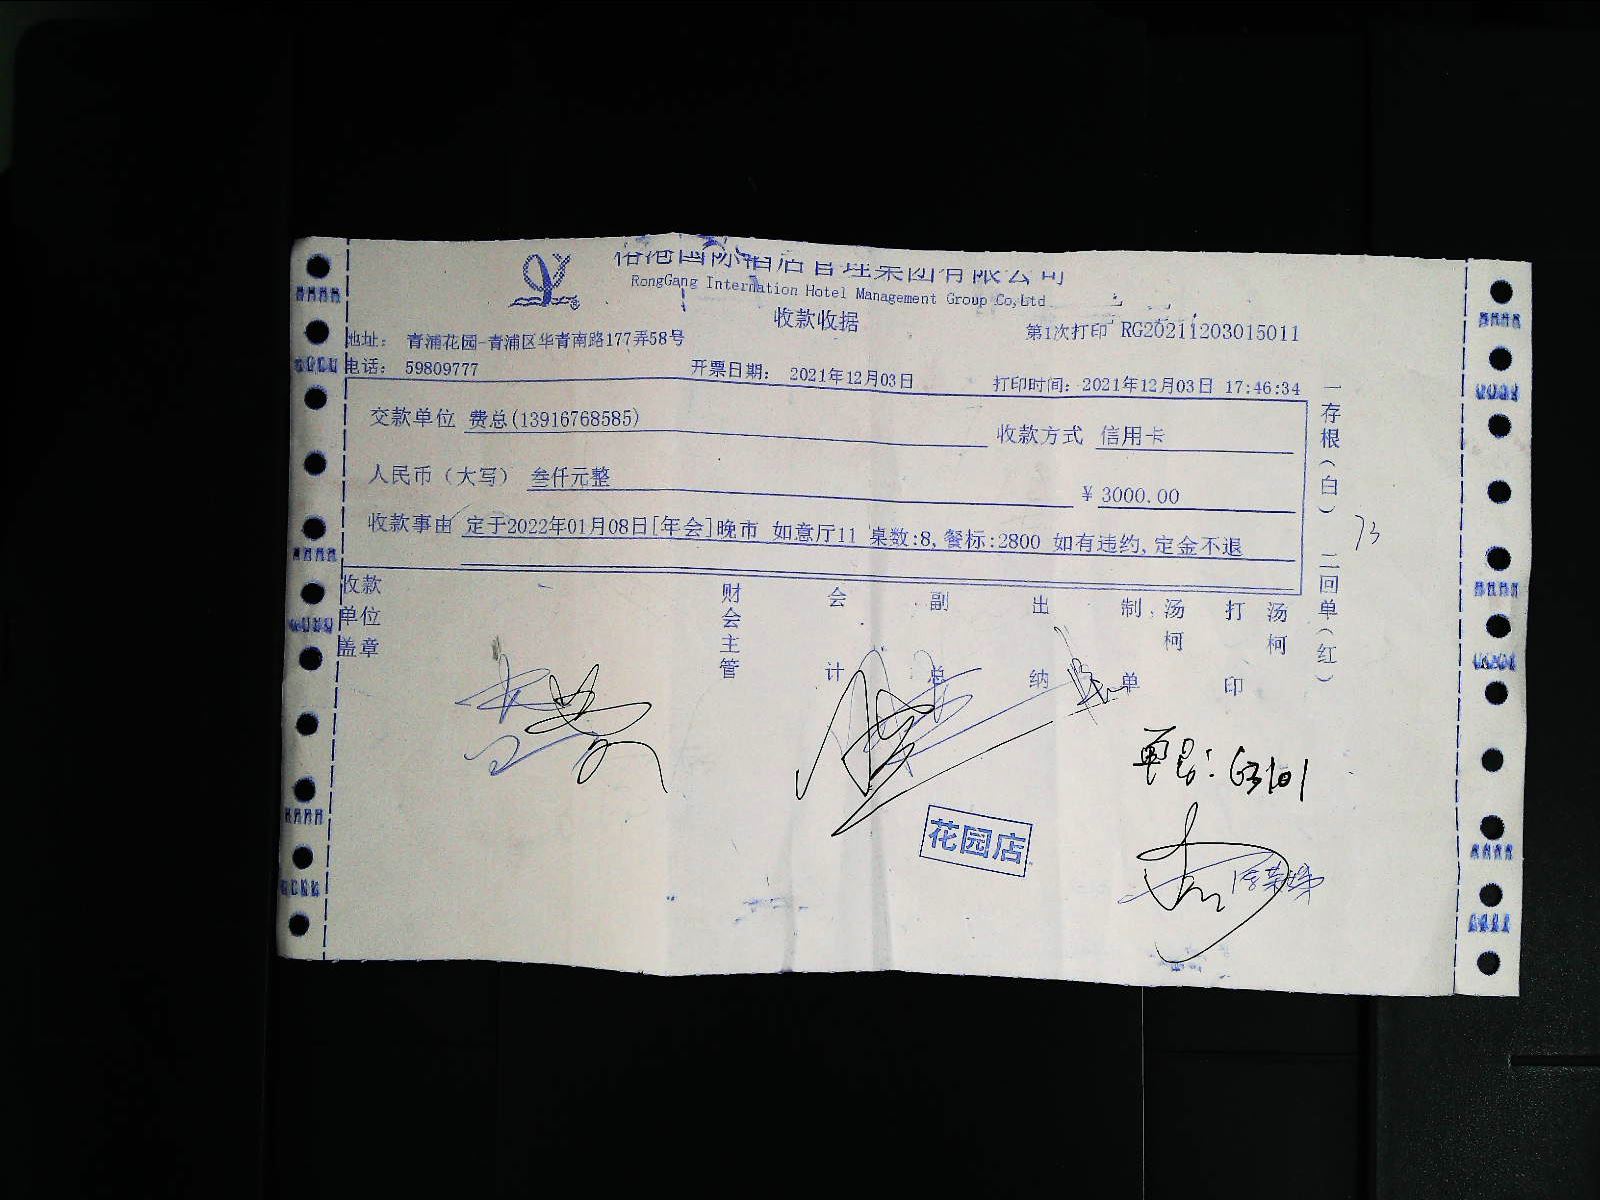 国际酒店管理集团有限公司
RongGang Internation Hotel Management Group Co,Ltd
收款收据
第1次打印 RG20211203015011
地址： 青浦花园-青浦区华青南路177弄58号
电话： 59809777
开票日期： 2021年12月03日
打印时间：2021年12月03日 17:46:34
交款单位 费总(13916768585)
收款方式 信用卡
人民币（大写） 叁仟元整
￥ 3000.00
收款事由 定于2022年01月08日[年会]晚市 如意厅11 桌数:8,餐标:2800 如有违约,定金不退
一存根（白） 二回单（红）
73
收款单位盖章
财会主管
会计
副总
出纳
制单 汤柯
打印 汤柯
63101
花园店